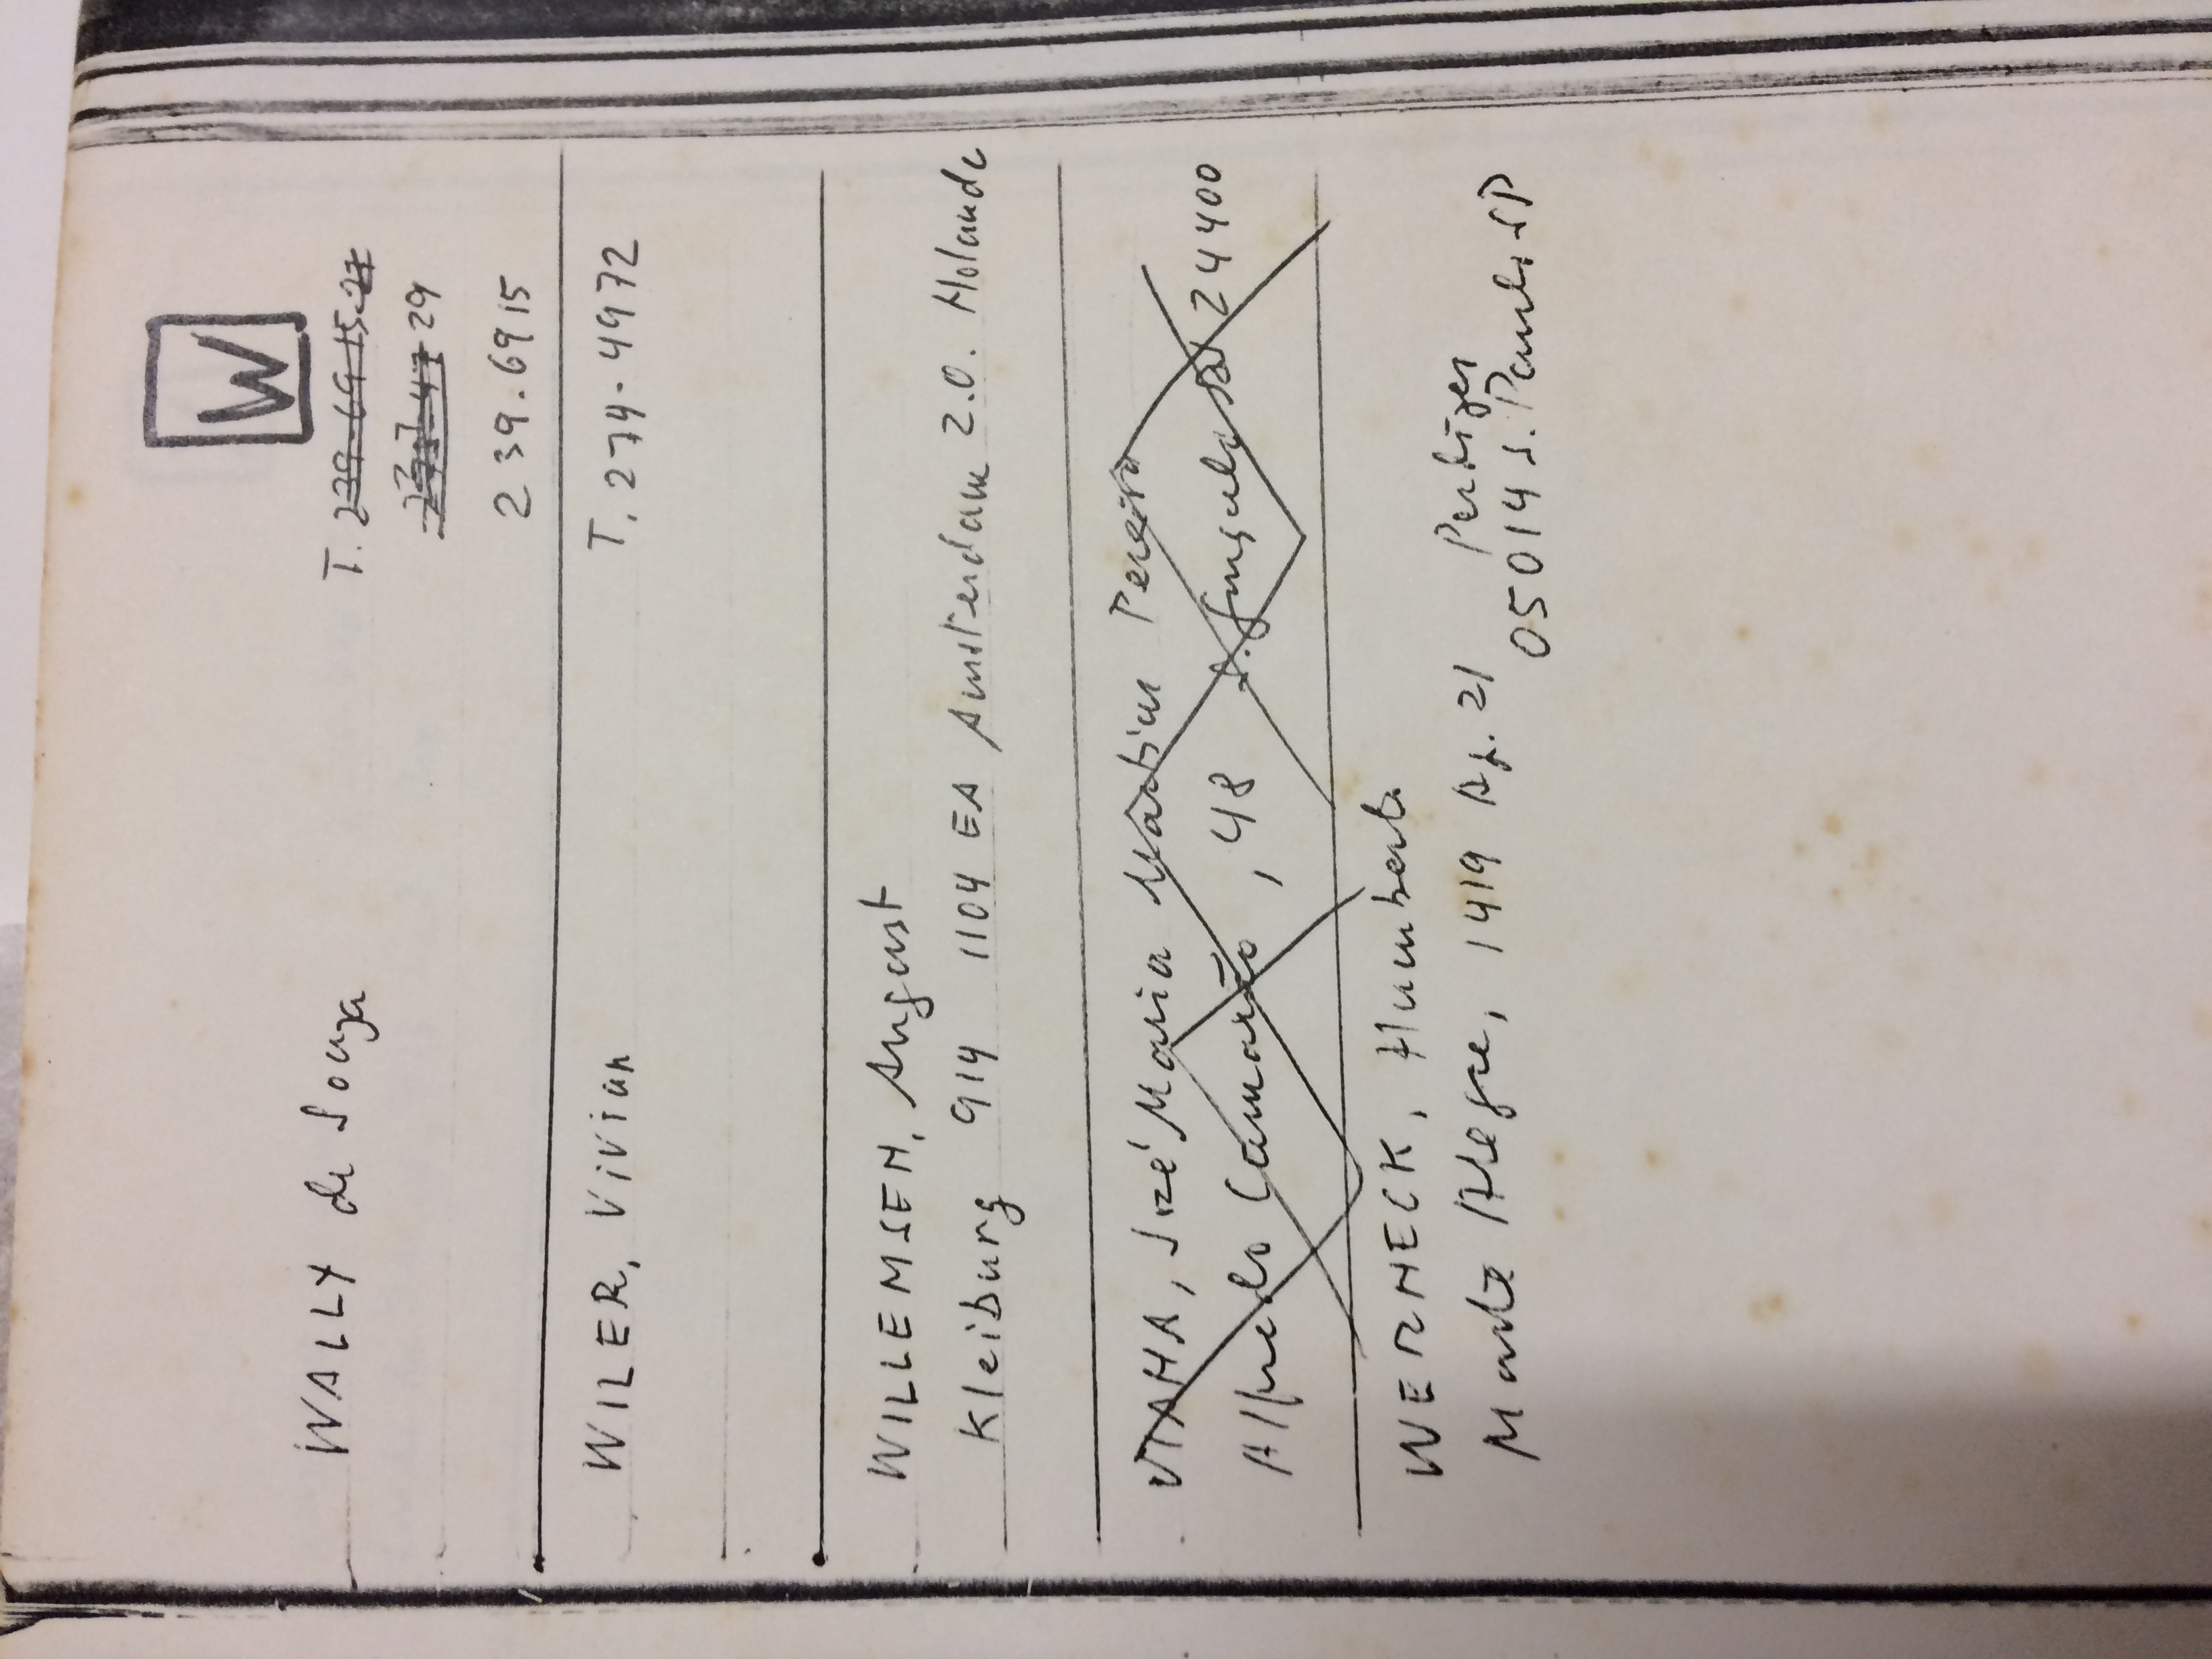 W
WALLY de Souza T. 239-6915
29
239.6915
WILER, Vivian T. 274-4972
WILLEMSEN, August
Kleiburg 914 1104 EA Amsterdam Z.O. Holanda
VIANA, José Maria Martim Pereira
Alfredo Camarão, 48 S. Gonçalo 24400
WERNECK, Humberto
Monte Alegre, 1419 Ap. 21 Perdizes
05014 S. Paulo, SP